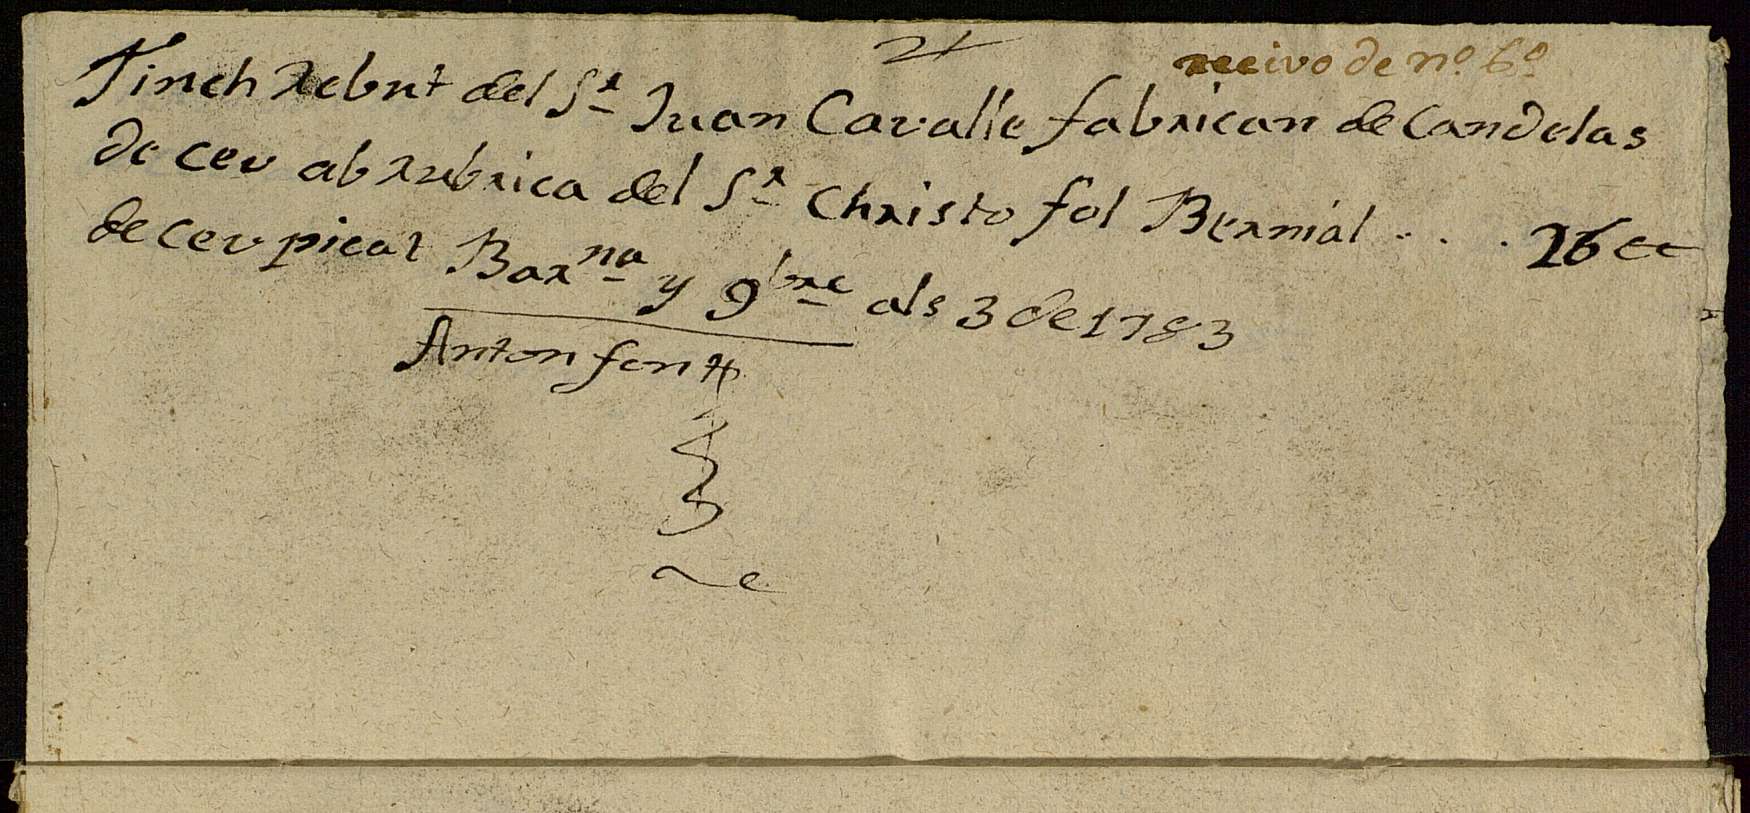 recivo de nº 6º
Tinch Rebut del Sr Juan Cavalle fabrican de Candelas
de ceu ab rubrica del Sr Christo fol Bernial . . . 26 @
de ceu picat Barna y 9bre als 3 de 1783
Anton font